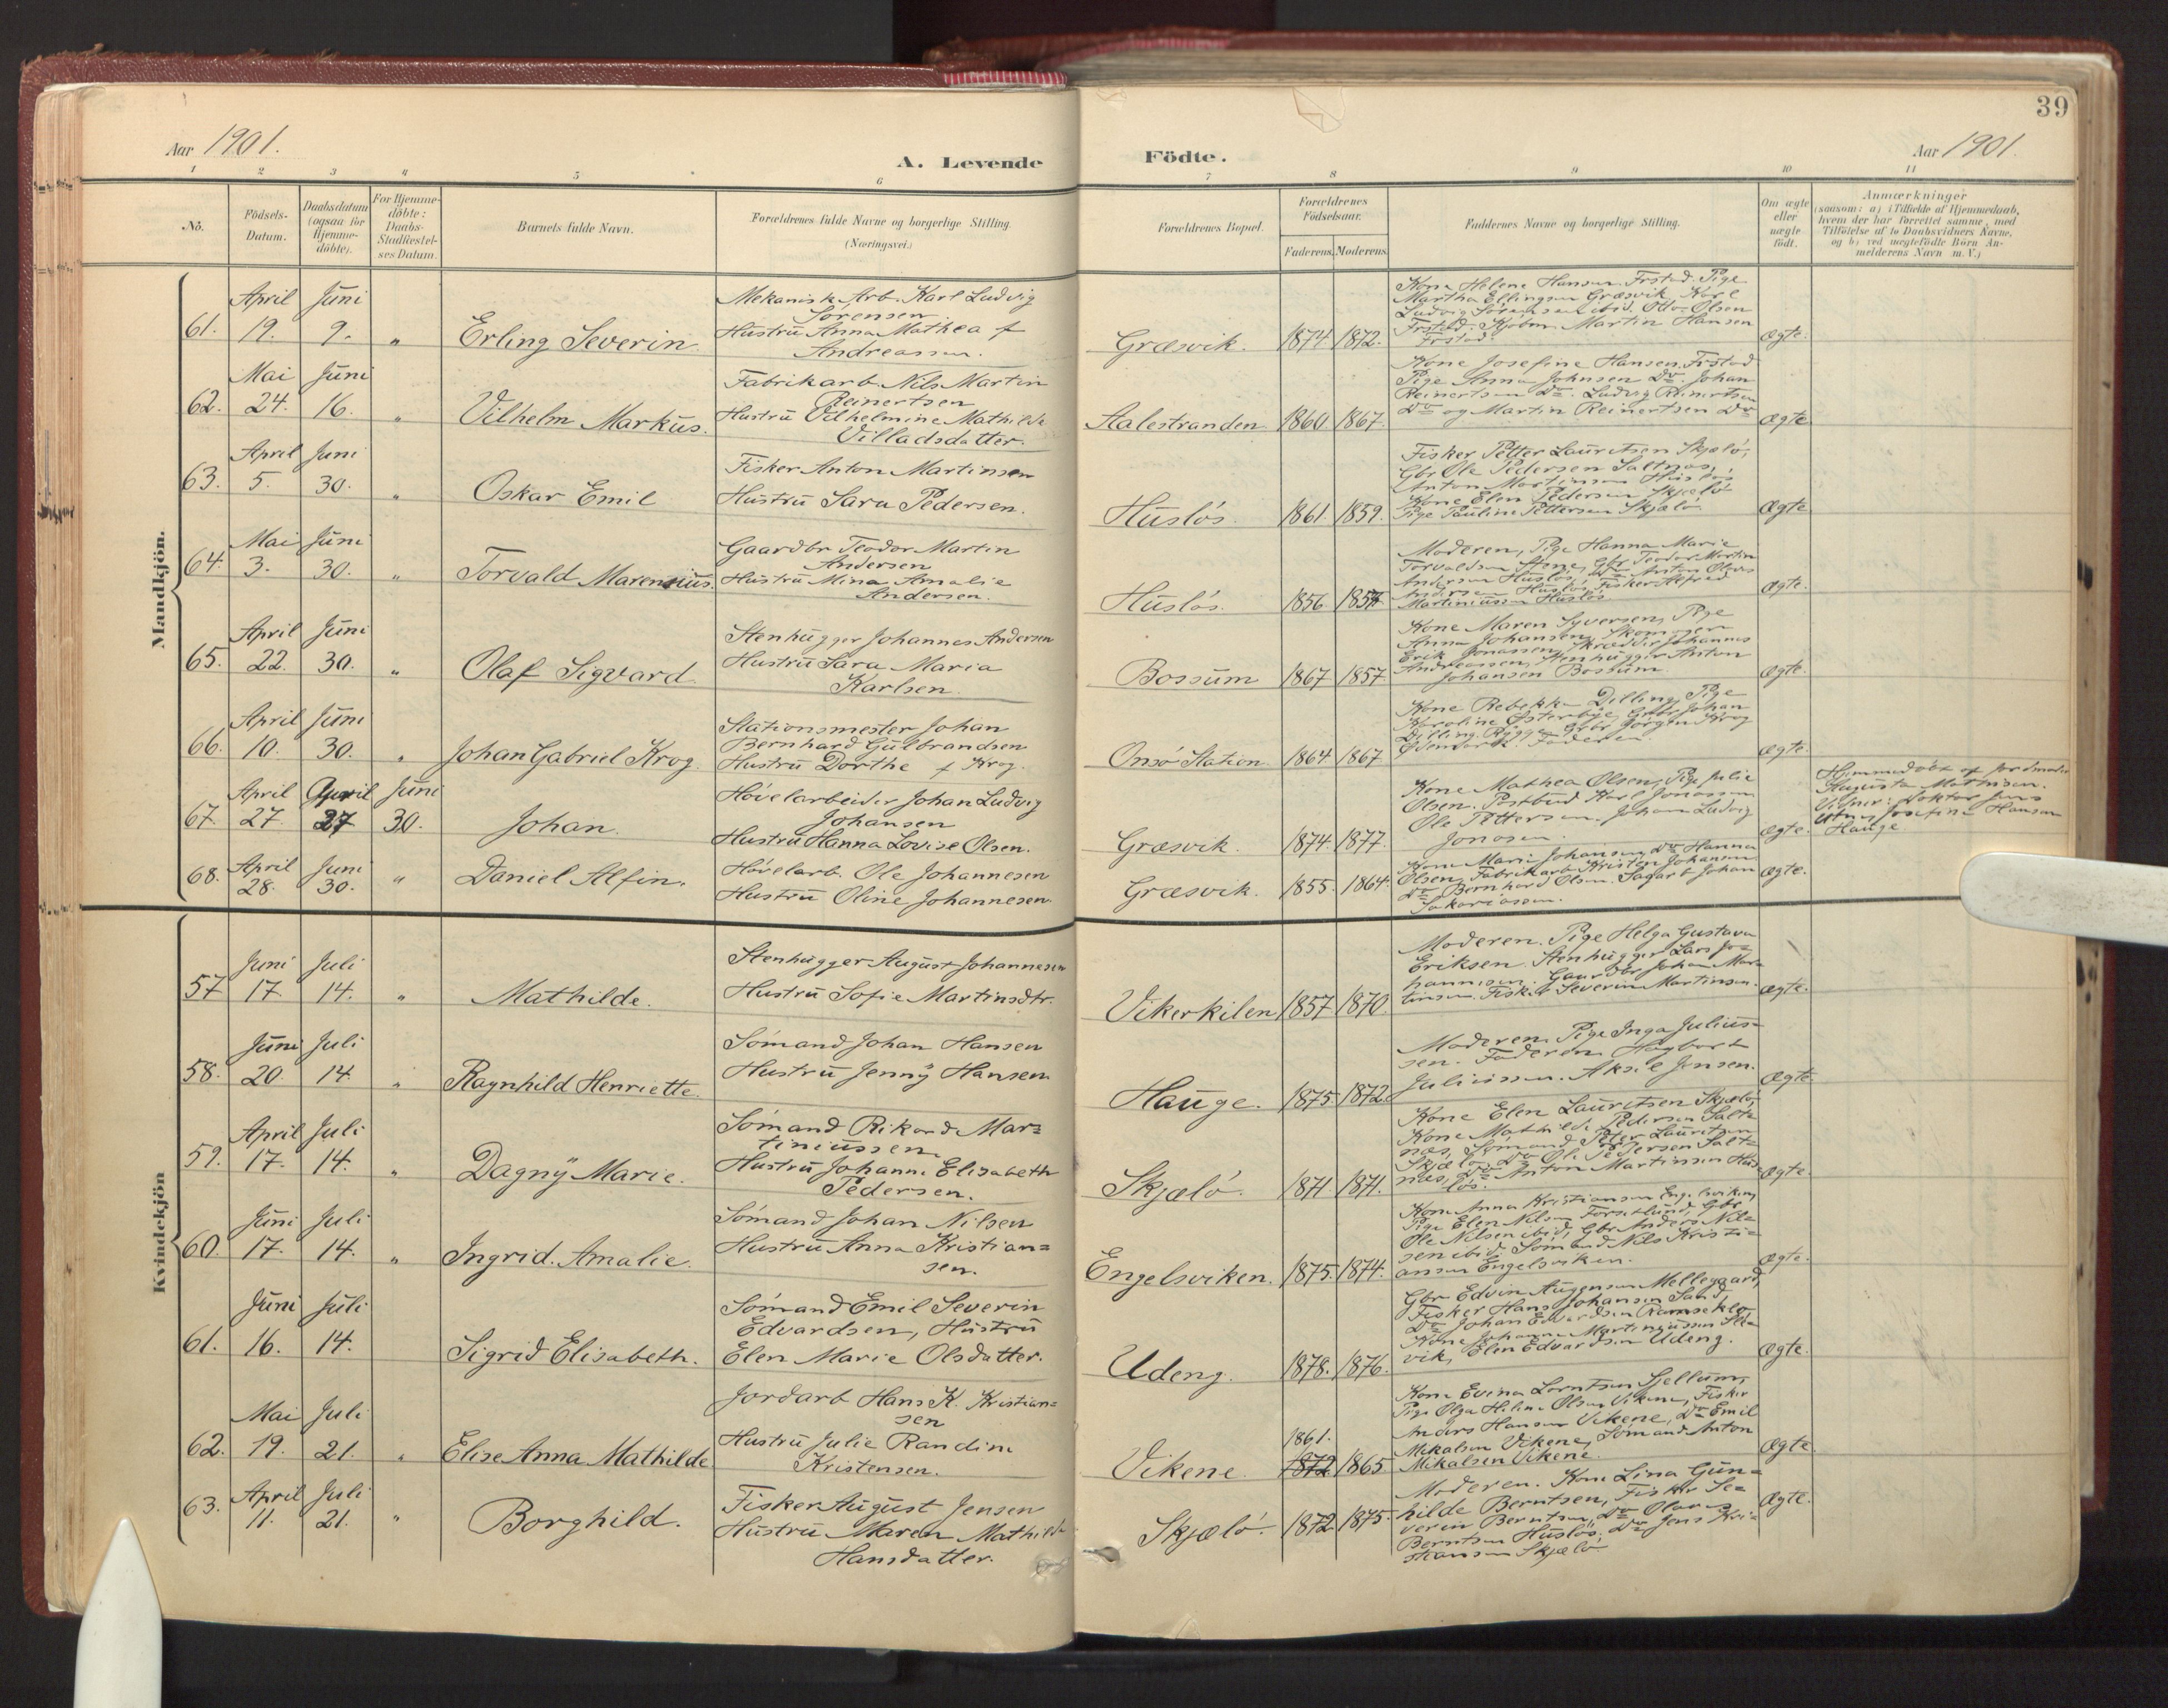 39
Aar 1901.
A. Levende
Födte.
Aar 1901.
1 2 3 4 5 6 7 8 9 10 11
No.
Födsels-Datum.
Daabsdatum (ogsaa for Hjemme-döbte).
For Hjemme-döbte: Daabs-Stadfæstel-ses Datum.
Barnets fulde Navn.
Forældrenes fulde Navne og borgerlige Stilling.
(Næringsvei.)
Forældrenes Bopæl.
Forældrenes Födselsaar.
Faderens. Moderens.
Faddernes Navne og borgerlige Stilling.
Om ægte eller uægte födt.
Anmærkninger
(saasom: a) i Tilfælde af Hjemmedaab,
hvem der har forrettet samme, med
Tilföielse af to Daabsvidners Navne,
og b) ved uægtefödte Börn An-
melderens Navn m. V.)
Mandkjön.
61. April 19. Juni 9. „ Erling Severin.
Mekanisk Arb. Karl Ludvig
Sørensen
Hustru Anna Mathea f
Andreassen.
Græsvik. 1874 1872.
Kone Helene Hansen Frstad. Pige
Martha Ellingsen Græsvik Karl
Ludvig Sørensen ibid. Otto Olsen
Frstad. Kjøbm. Martin Hansen
Frstad.
Ægte.
62. Mai 24. Juni 16. „ Vilhelm Markus.
Fabrikarb. Nils Martin
Reinertsen
Hustru Vilhelmine Mathilde
Villadsdatter.
Aalestranden 1860 1867.
Kone Josefine Hansen, Frstad
Pige Anna Johnsen Do. Johan
Reinertsen Do. Ludvig Reinertsen
Do og Martin Reinertsen Do
Ægte
63. April 5. Juni 30. „ Oskar Emil
Fisker Anton Martinsen
Hustru Sara Pedersen.
Husløs. 1861 1859.
Fisker Petter Lauritsen Skjælø,
Gbr Ole Pedersen Saltnæs,
Anton Martinsen Husløs
Kone Elen Pedersen Skjælø
Pige Pauline Pettersen Skjælø.
Ægte
64. Mai 3. Juni 30. „ Torvald Marensius.
Gaardbr Teodor Martin
Andersen
Hustru Mina Amalie
Andersen.
Husløs. 1856 1857.
Moderen, Pige Hanna Marie
Torvaldsen Stene, Gbr Teodor Martin
Andersen Husløs, Do Anton
Andersen Husløs, Fisker Alfred
Martiniussen Husløs.
Ægte.
65. April 22. Juni 30. „ Olaf Sigvard.
Stenhugger Johannes Andersen
Hustru Sara Maria
Karlsen.
Bossum 1867 1857
Kone Maren Syversen, Pige
Anna Johansen, Skomager
Erik Jonassen, Skrædder Johannes
Andreassen, Stenhugger Anton
Johansen Bossum.
Ægte.
66. April 10. Juni 30. „ Johan Gabriel Krog
Stationsmester Johan
Bernhard Gulbrandsen
Hustru Dorthe f Krog.
Onsø Station 1864 1867
Kone Rebekka Dilling, Pige
Karoline Østerbye, Gbr Johan
Dilling. Rygge Gbr Jørgen Krog
Faderen.
Ægte.
67. April 27. April 27 Juni 30. Johan.
Høvelarbeider Johan Ludvig
Johansen
Hustru Hanna Lovise Olsen.
Græsvik. 1874. 1877.
Kone Mathea Olsen, Pige Julie
Olsen. Postbud Karl Jonassen
Ole Pettersen. Johan Ludvig
Jonasen.
Ægte.
Hjemmedøbt af Jordmoder
Augusta Mathisen.
Vidner: Doktor Jens
Utne, Josefine Hansen
Hauge
68. April 28. Juni 30. „ Daniel Alfin.
Høvelarb. Ole Johannesen
Hustru Oline Johannesen.
Græsvik. 1855. 1864.
Kone Marie Johansen, Do Hanna
Olsen, Fabrikarb Kristen Johansen
Do Bernhard Olsen. Sagarb Johan
Sakariassen.
Ægte.
Kvindekjön
57 Juni 17. Juli 14. „ Mathilde.
Stenhugger August Johannesen
Hustru Sofie Martinsdtr.
Vikerkilen 1857 1870.
Moderen. Pige Helga Gustava
Eriksen. Stenhugger Lars Jo=
hannesen. Gaardbr Johan Mar=
tinsen. Fisker Severin Martinsen.
Ægte.
58. Juni 20. Juli 14. „ Ragnhild Henriette.
Sømand Johan Hansen
Hustru Jenny Hansen
Hauge. 1875. 1872.
Moderen. Pige Inga Julius=
sen. Faderen. Hagbart
Juliussen. Aksel Jensen.
Ægte.
59. April 17. Juli 14. „ Dagny Marie.
Sømand Rikard Mar=
tiniussen
Hustru Johanne Elisabeth
Pedersen.
Skjælø. 1871. 1871.
Kone Elen Lauritsen Skjælø,
Kone Mathilde Pedersen Salt=
næs, Sømand Peter Lauritsen
Skjælø, Do Ole Pedersen Salt=
næs, Do Anton Martinsen Hus=
løs.
Ægte.
60. Juni 17. Juli 14. „ Ingrid. Amalie.
Sømand Johan Nilsen
Hustru Anna Kristian=
sen.
Engelsviken. 1875. 1874.
Kone Anna Kristiansen Engelsviken,
Pige Elen Nilsen Forsetlund, Gbr
Ole Nilsen ibid, Gbr Anders Nil=
sen ibid. Sømand Nils Kristi=
ansen Engelsviken.
Ægte.
61. Juni 16. Juli 14. Sigrid Elisabeth.
Sømand Emil Severin
Edvardsen, Hustru
Elen Marie Olsdatter.
Udeng. 1878. 1876.
Gbr Edvin Augensen Mellegaard,
Fisker Hans Johansen Sand,
Do Johan Edvardsen Ramseklo,
Kone Johanne Martiniussen
vik, Elen Edvardsen Udeng.
Ægte.
62. Mai 19. Juli 21. „ Elise Anna Mathilde
Jordarb Hans K. Kristian=
sen
Hustru Julie Randine
Kristensen.
Vikene. 1861. 1872 1865
Kone Evina Lorntsen Sjellum,
Pige Olga Heline Olsen Vikene, Fisker
Anders Hansen Vikene, Do Emil
Mikalsen Vikene, Sømand Anton
Mikalsen Vikene.
Ægte
63. April 11. Juli 21. „ Borghild.
Fisker August Jensen
Hustru Maren Mathilde
Hansdatter.
Skjælø. 1872 1875.
Moderen. Kone Lina Gun=
hilde Berntsen, Fisker Se=
verin Berntsen, Do Olaus
Berntsen Husløs, Do Jens Kri=
stiansen Skjælø.
Ægte.